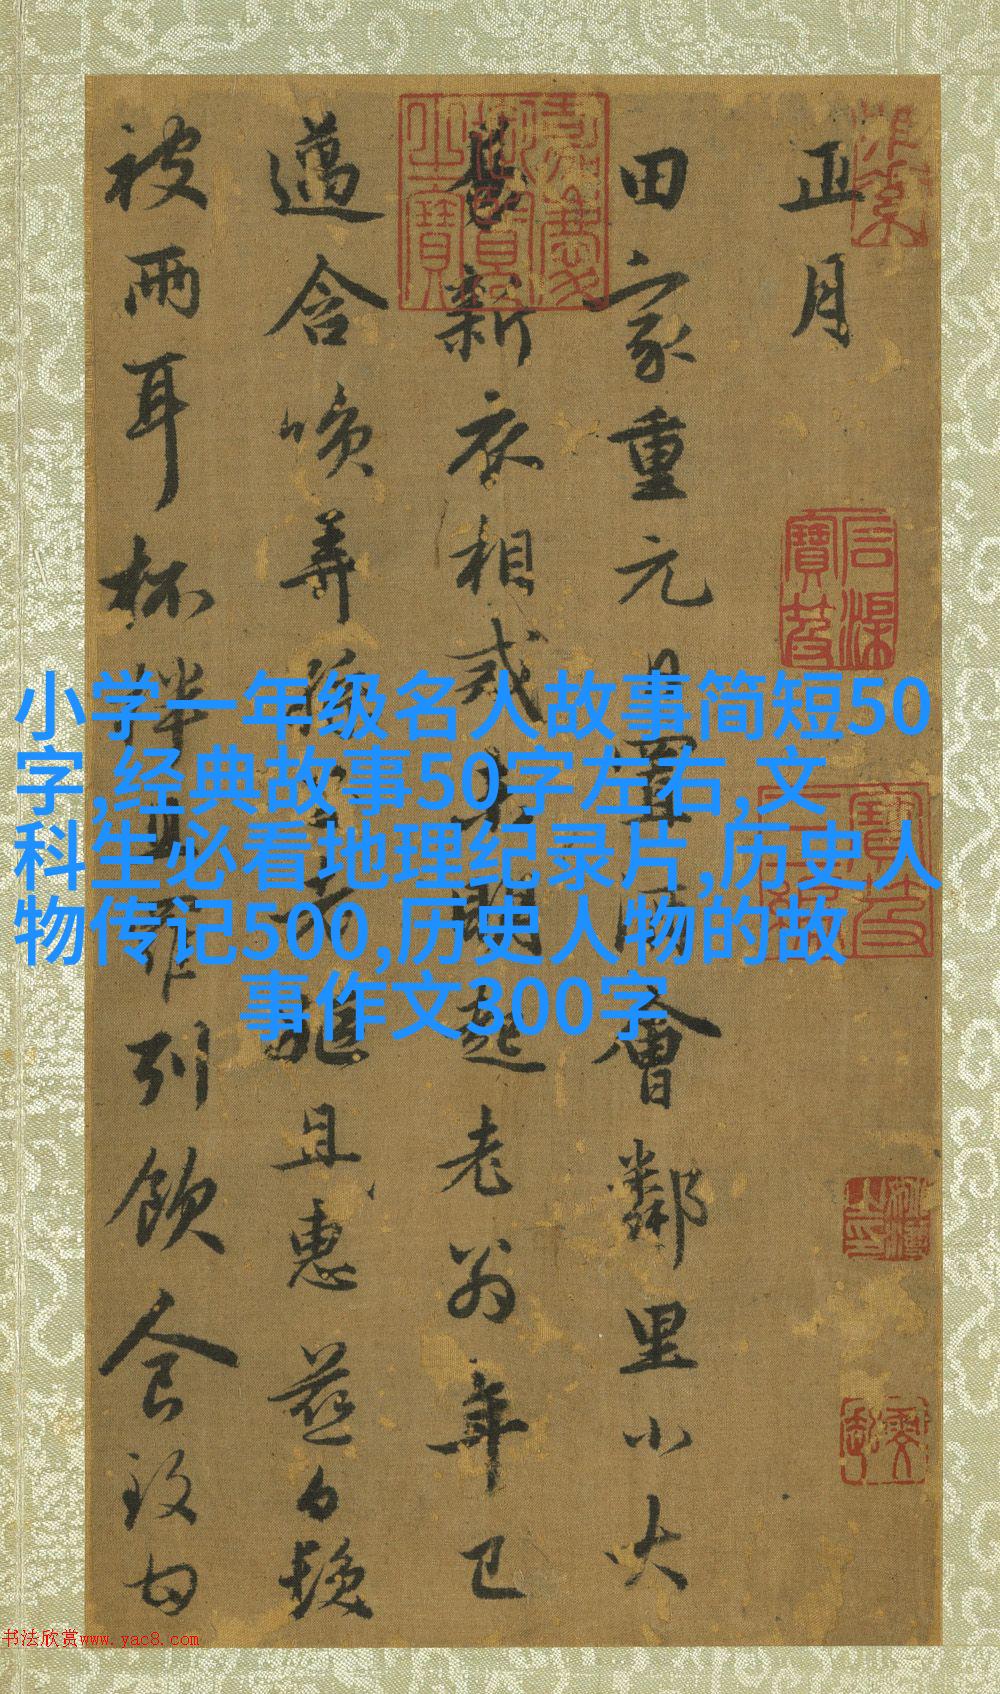 正月
田家重元日置酒會鄰里小大
易新衣相戒未明起老翁年已
邁含喚弄孫子老嫗且惠慈白鬢
被兩耳杯
列飲食致勾
小学一年级名人故事简短50
字,经典故事50字左右,文
科生必看地理纪录片,历史人
物传记500,历史人物的故
事作文300字
书法欣赏www.yac8.com